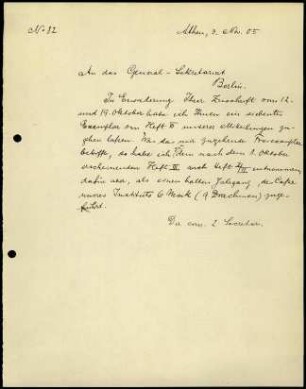 No 82
Athen, 2. Nov. 05
An das General-Sekretariat
Berlin.
In Erwiderung Ihrer Zuschrift vom 12.
und 19. Oktober habe ich Ihnen ein siebentes
Exemplar von Heft II unserer Mitteilungen zu-
gehen lassen. Was das mir zugehende Freiexemplar
betrifft, so habe ich Ihrem nach dem 1. Oktober
erscheinenden Heft III auch Heft
dafür aus, als einen halben Jahrgang, der Casse
unseres Instituts 6 Mark (9 Drachmen) zuge-
Der com. I. Secretar.